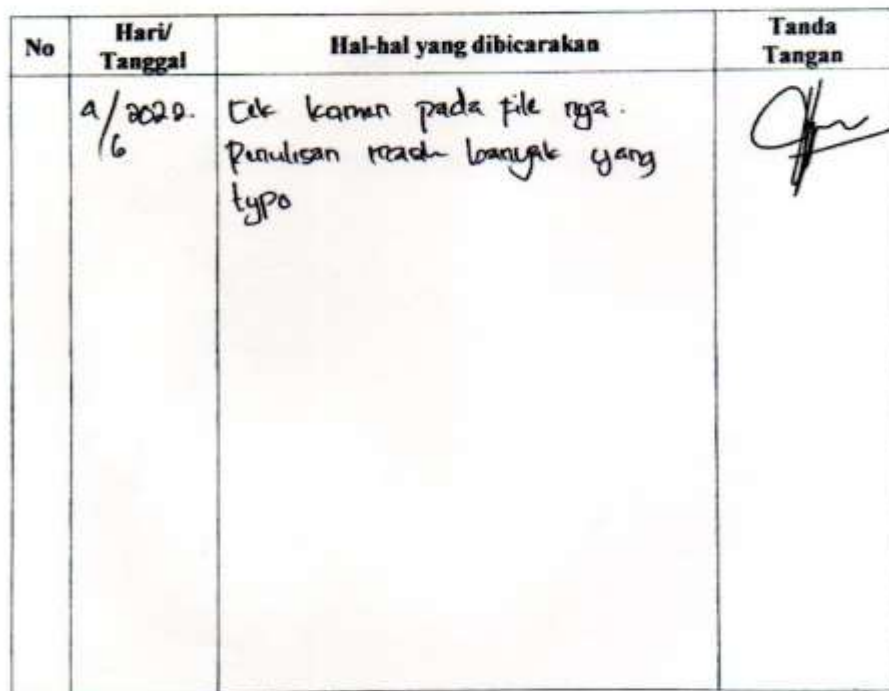 No
Hari/
Tanggal
Hal-hal yang dibicarakan
Tanda
Tangan
9/6 2022. Cek komen pada file nya.
Penulisan masih banyak yang
typo